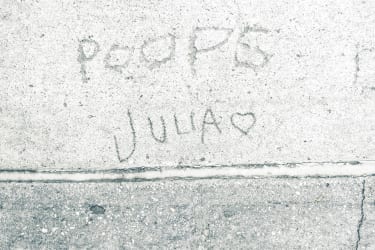 POOPS
JULIA♡